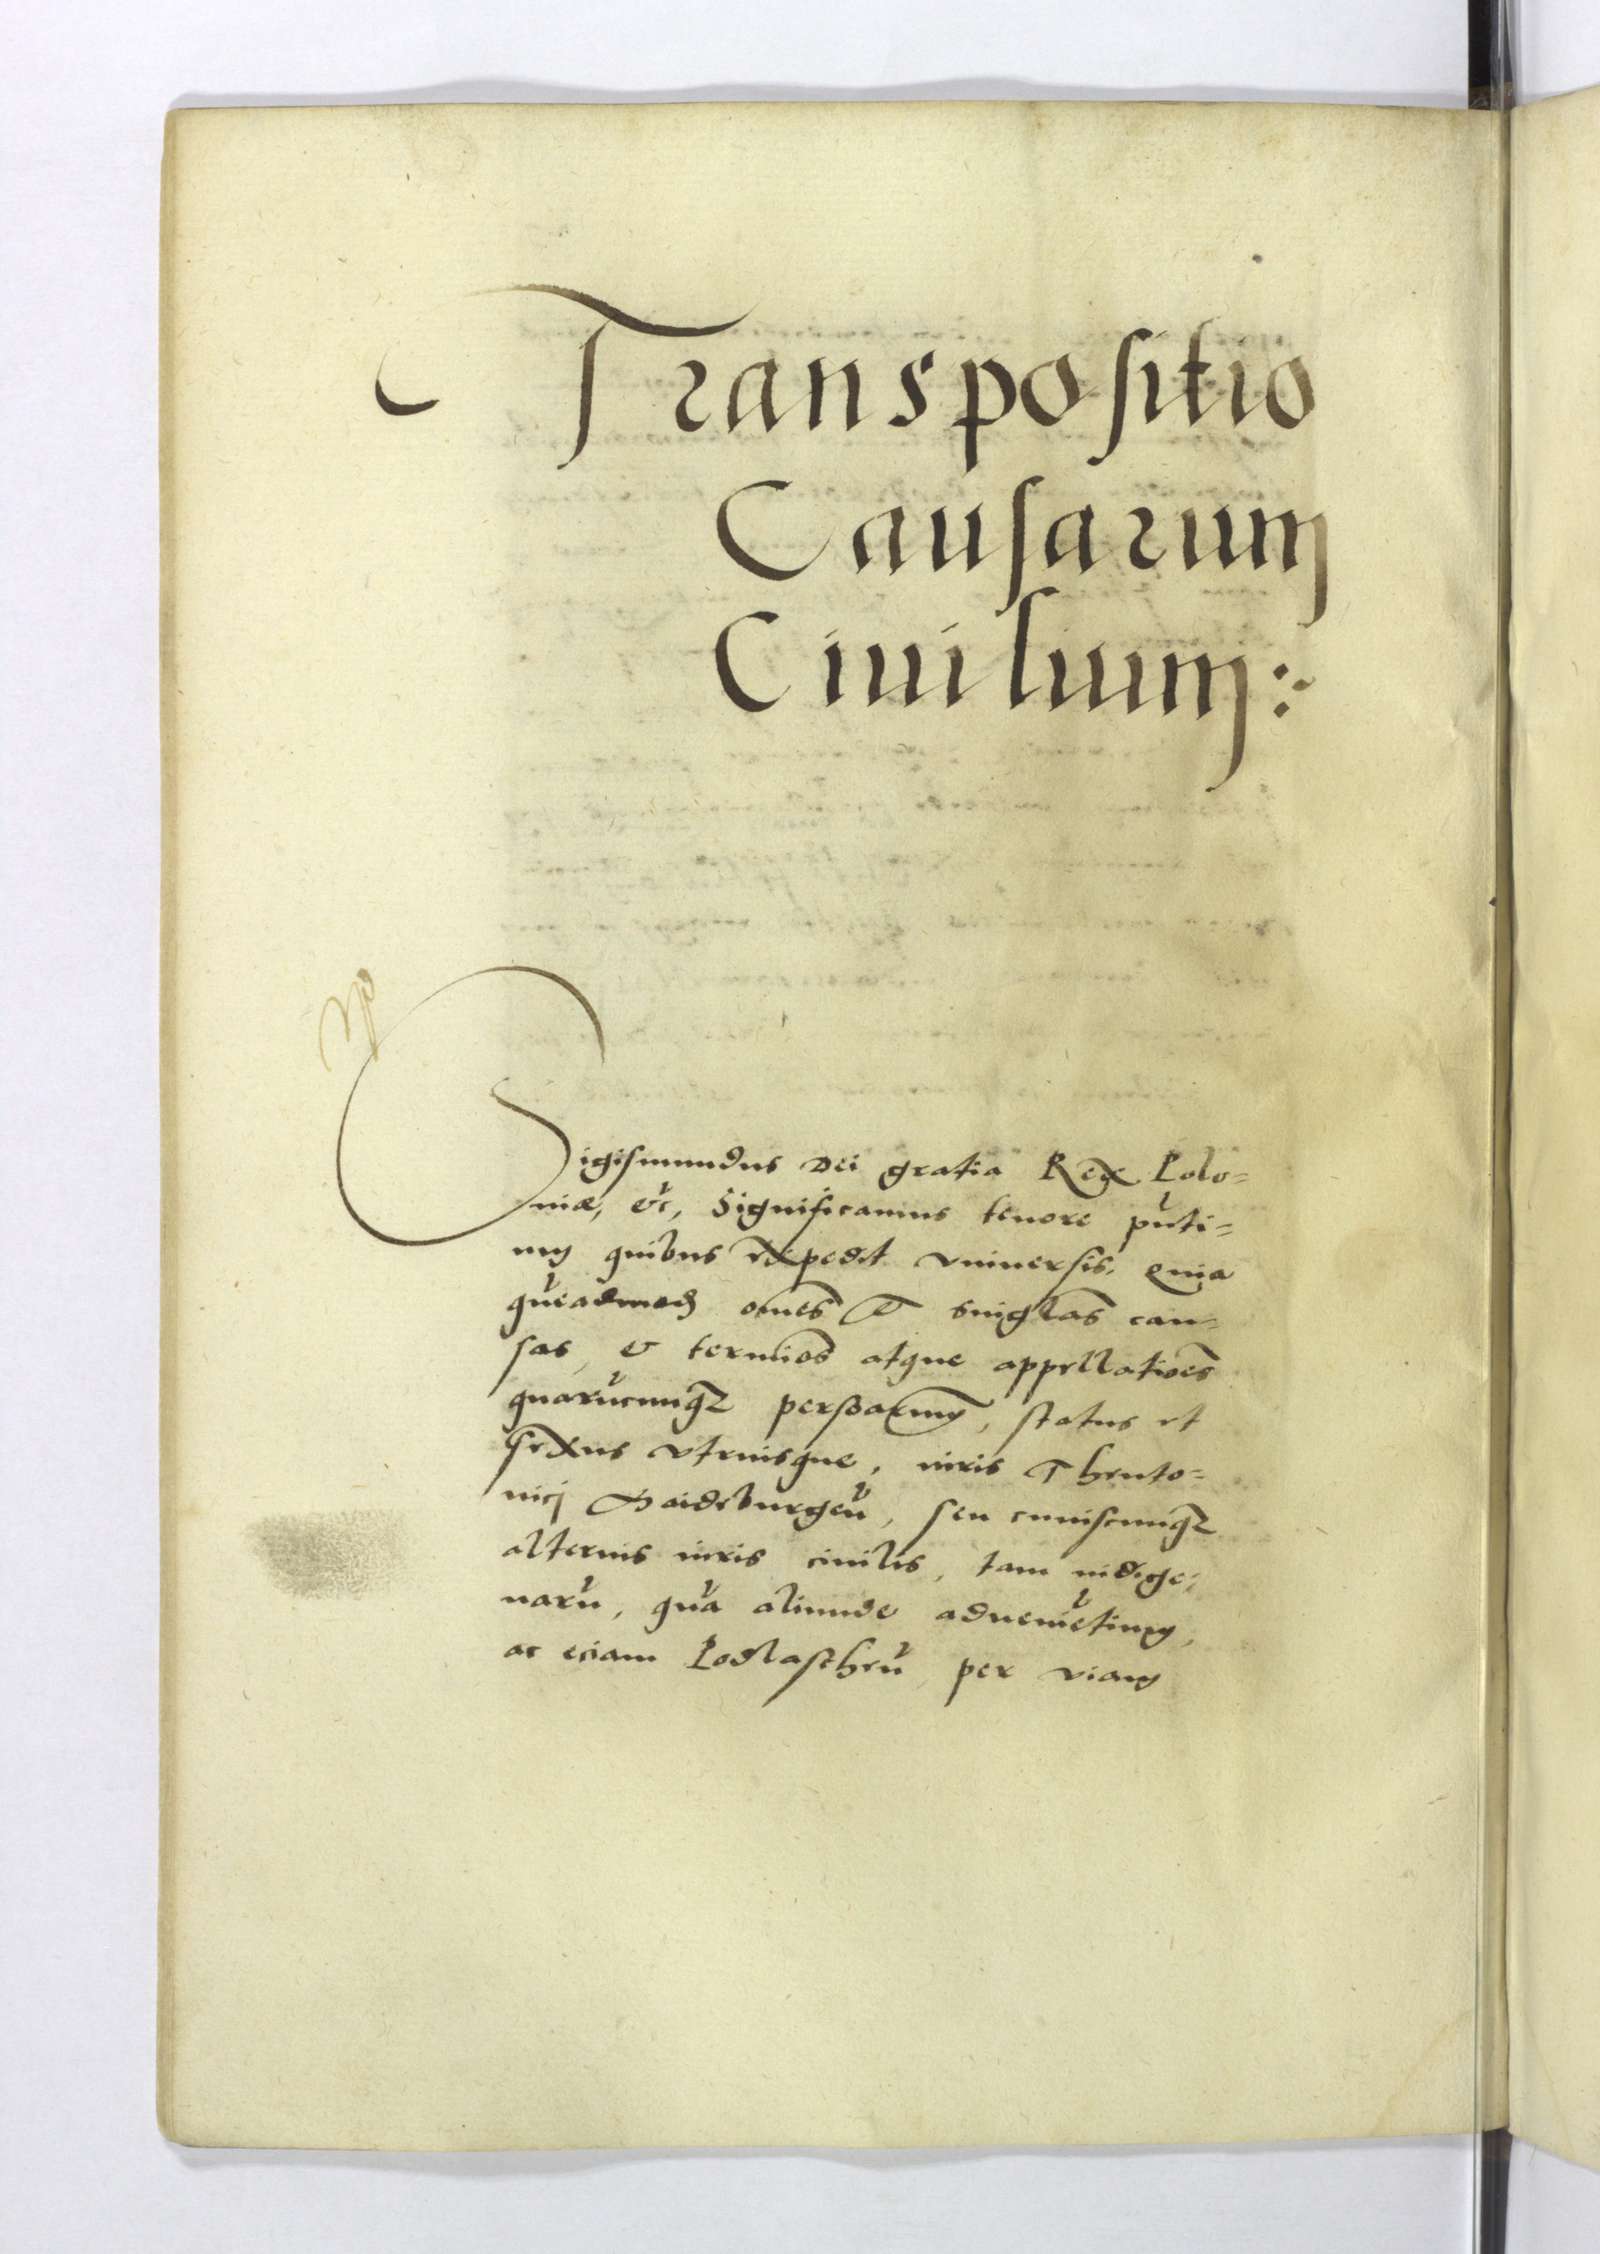 Transpositio
Causarum
Ciuilium:
Sigismundus Dei gratia Rex Polo=
niæ, etc, Significamus tenore pñti=
um quibus expedit vniuersis, Quia
quẽadmod omẽs et singlas cau=
sas, et termios atque appellatioẽs
quarũcunqz persoarum, status et
sexus vtriusque, iuris Theuto=
nicj Maideburgeñ, seu cuiuscunqz
alterius iuris ciuilis, tam indige=
narũ, quã aliunde adueniẽtium,
ac eciam Podlascheñ per viam